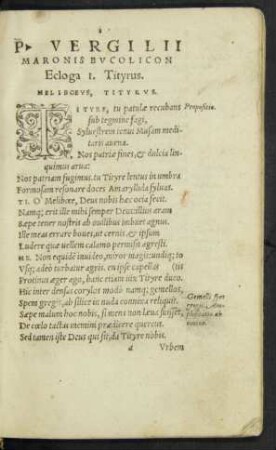 P. VERGILII
MARONIS BVCOLICON
Ecloga 1. Tityrus.
MELIBOEVS, TITYRVS.
TITYRE, tu patulæ recubans
Propositio.
sub tegmine fagi,
Syluestrem tenui Musam meditaris
auena.
Nos patriæ fines, & dulcia linquimus
arua:
Nos patriam fugimus, tu Tityre lentus in umbra
Formosam resonare doces Amaryllida syluas.
TI. O Melibœe, Deus nobis hæc ocia fecit.
Namq; erit ille mihi semper Deus: illius aram
Sæpe tener nostris ab ouilibus imbuet agnus.
Ille meas errare boues, ut cernis, & ipsum
Ludere quæ uellem calamo permisit agresti.
ME. Non equidē inuideo, miror magis: undiq; to
Vsq; adeò turbatur agris. en ipse capellas (tis
Protinus æger ago, hanc etiam uix Tityre duco.
Hic inter densas corylos modò namq; gemellos,
Spem gregis, ah silice in nuda connixa reliquit.
Sæpe malum hoc nobis, si mens non læua fuisset,
De cœlo tactas memini prædicere quercus.
Sed tamen iste Deus qui sit, da Tityre nobis.
a Vrbem